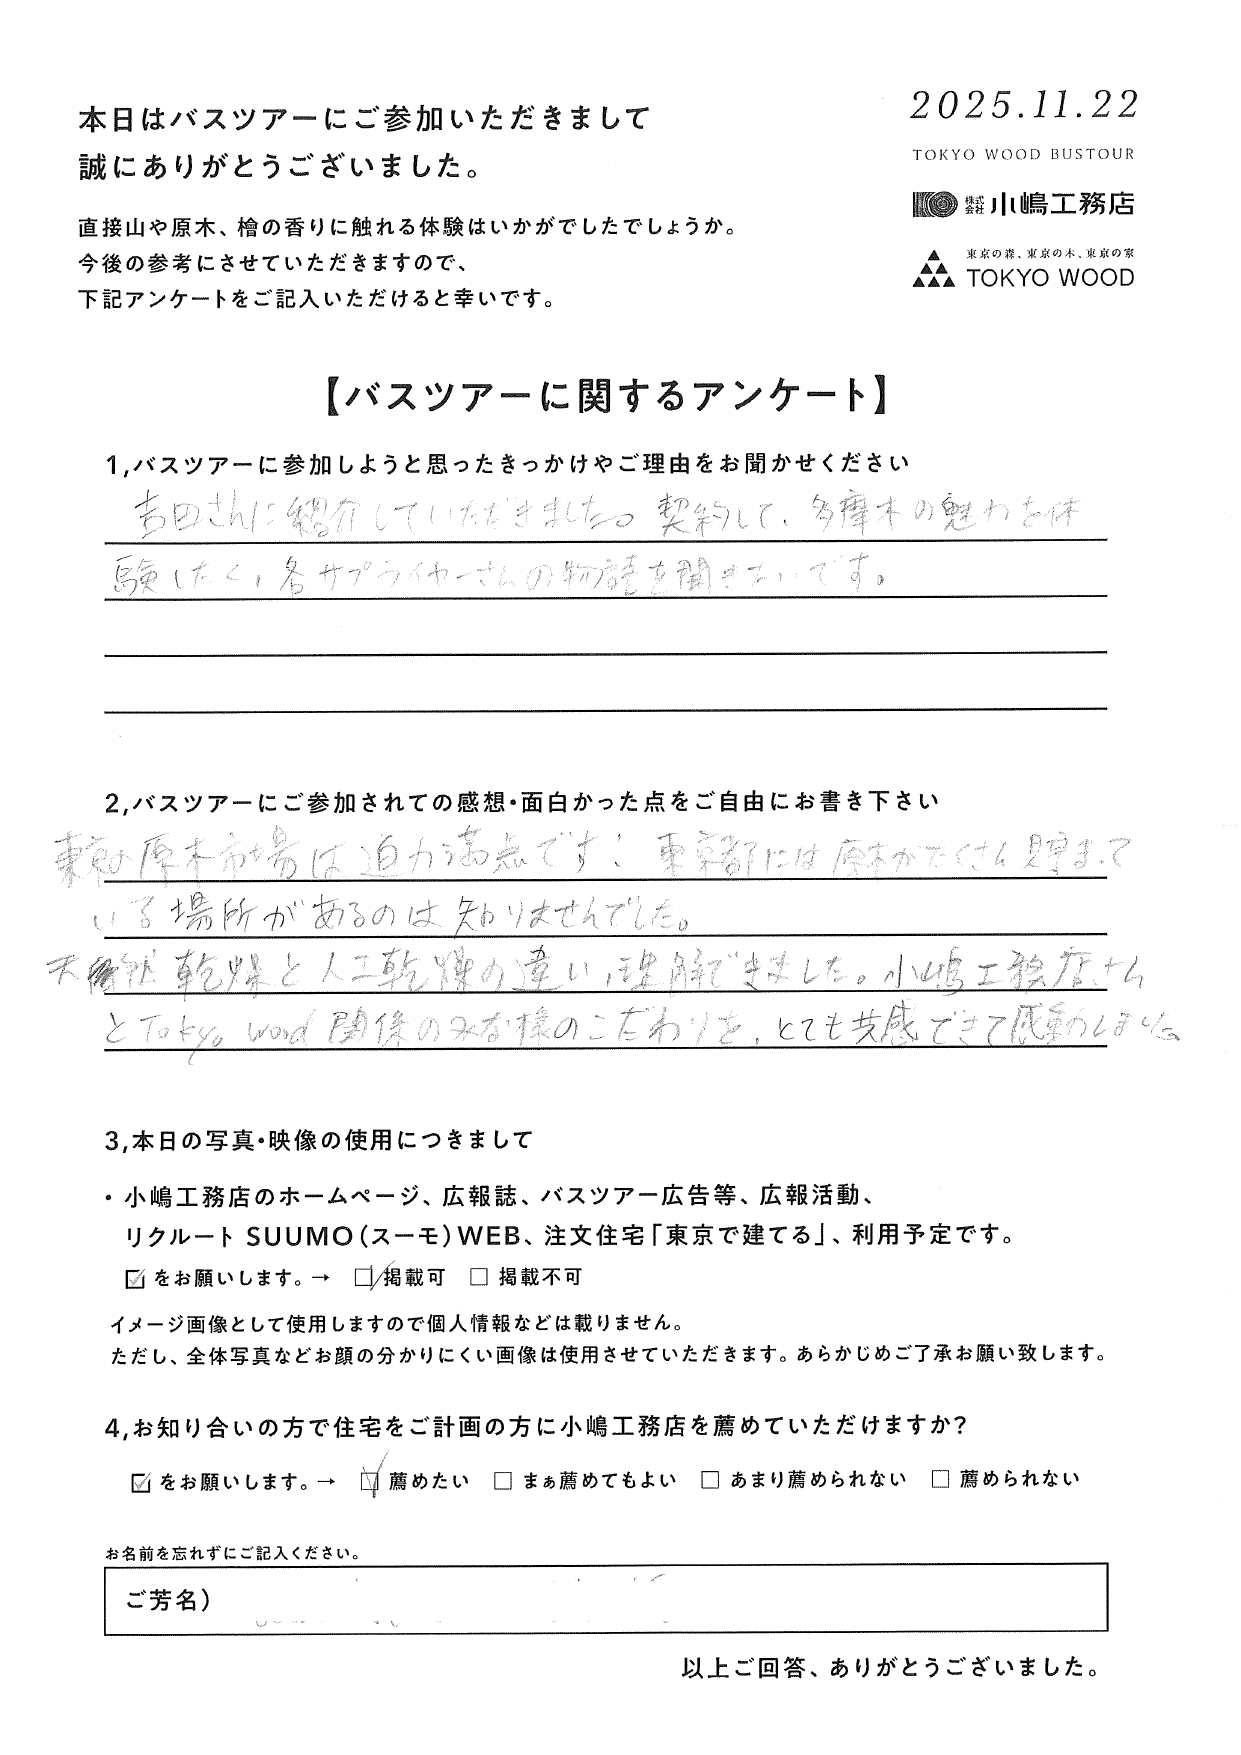 本日はバスツアーにご参加いただきまして
誠にありがとうございました。
直接山や原木、檜の香りに触れる体験はいかがでしたでしょうか。
今後の参考にさせていただきますので、
下記アンケートをご記入いただけると幸いです。
2025.11.22
TOKYO WOOD BUSTOUR
株式会社 小嶋工務店
東京の森、東京の木、東京の家
TOKYO WOOD
【バスツアーに関するアンケート】
1,バスツアーに参加しようと思ったきっかけやご理由をお聞かせください
吉田さんに紹介していただきました。契約して、多摩木の魅力を体
験したく、各サプライヤーさんの物語を聞きたいです。
2,バスツアーにご参加されての感想・面白かった点をご自由にお書き下さい
東京の原木市場は迫力満点です! 東京都には原木がたくさん貯まって
いる場所があるのは知りませんでした。
天然乾燥と人工乾燥の違い,理解できました。小嶋工務店さん
とTokyo wood 関係のみな様のこだわりを、とても共感できて感動しました。
3,本日の写真・映像の使用につきまして
・ 小嶋工務店のホームページ、広報誌、バスツアー広告等、広報活動、
リクルート SUUMO(スーモ)WEB、注文住宅「東京で建てる」、利用予定です。
☑ をお願いします。→ ☑ 掲載可 □ 掲載不可
イメージ画像として使用しますので個人情報などは載りません。
ただし、全体写真などお顔の分かりにくい画像は使用させていただきます。あらかじめご了承お願い致します。
4,お知り合いの方で住宅をご計画の方に小嶋工務店を薦めていただけますか?
☑ をお願いします。→ ☑ 薦めたい □ まぁ薦めてもよい □ あまり薦められない □ 薦められない
お名前を忘れずにご記入ください。
ご芳名)
以上ご回答、ありがとうございました。